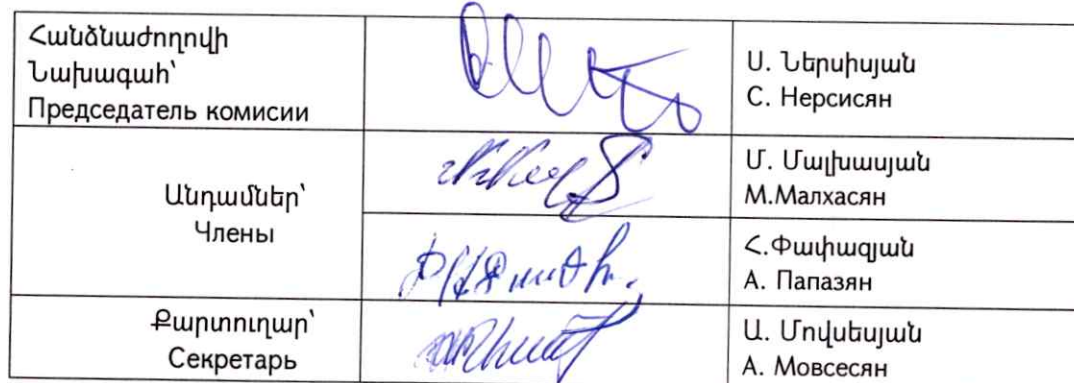 Հանձնաժողովի
Նախագահ՝
Председатель комисии
Ս. Ներսիսյան
С. Нерсисян
Անդամներ՝
Члены
Մ. Մալխասյան
М.Малхасян
Հ.Փափազյան
А. Папазян
Քարտուղար՝
Секретарь
Ա. Մովսեսյան
А. Мовсесян